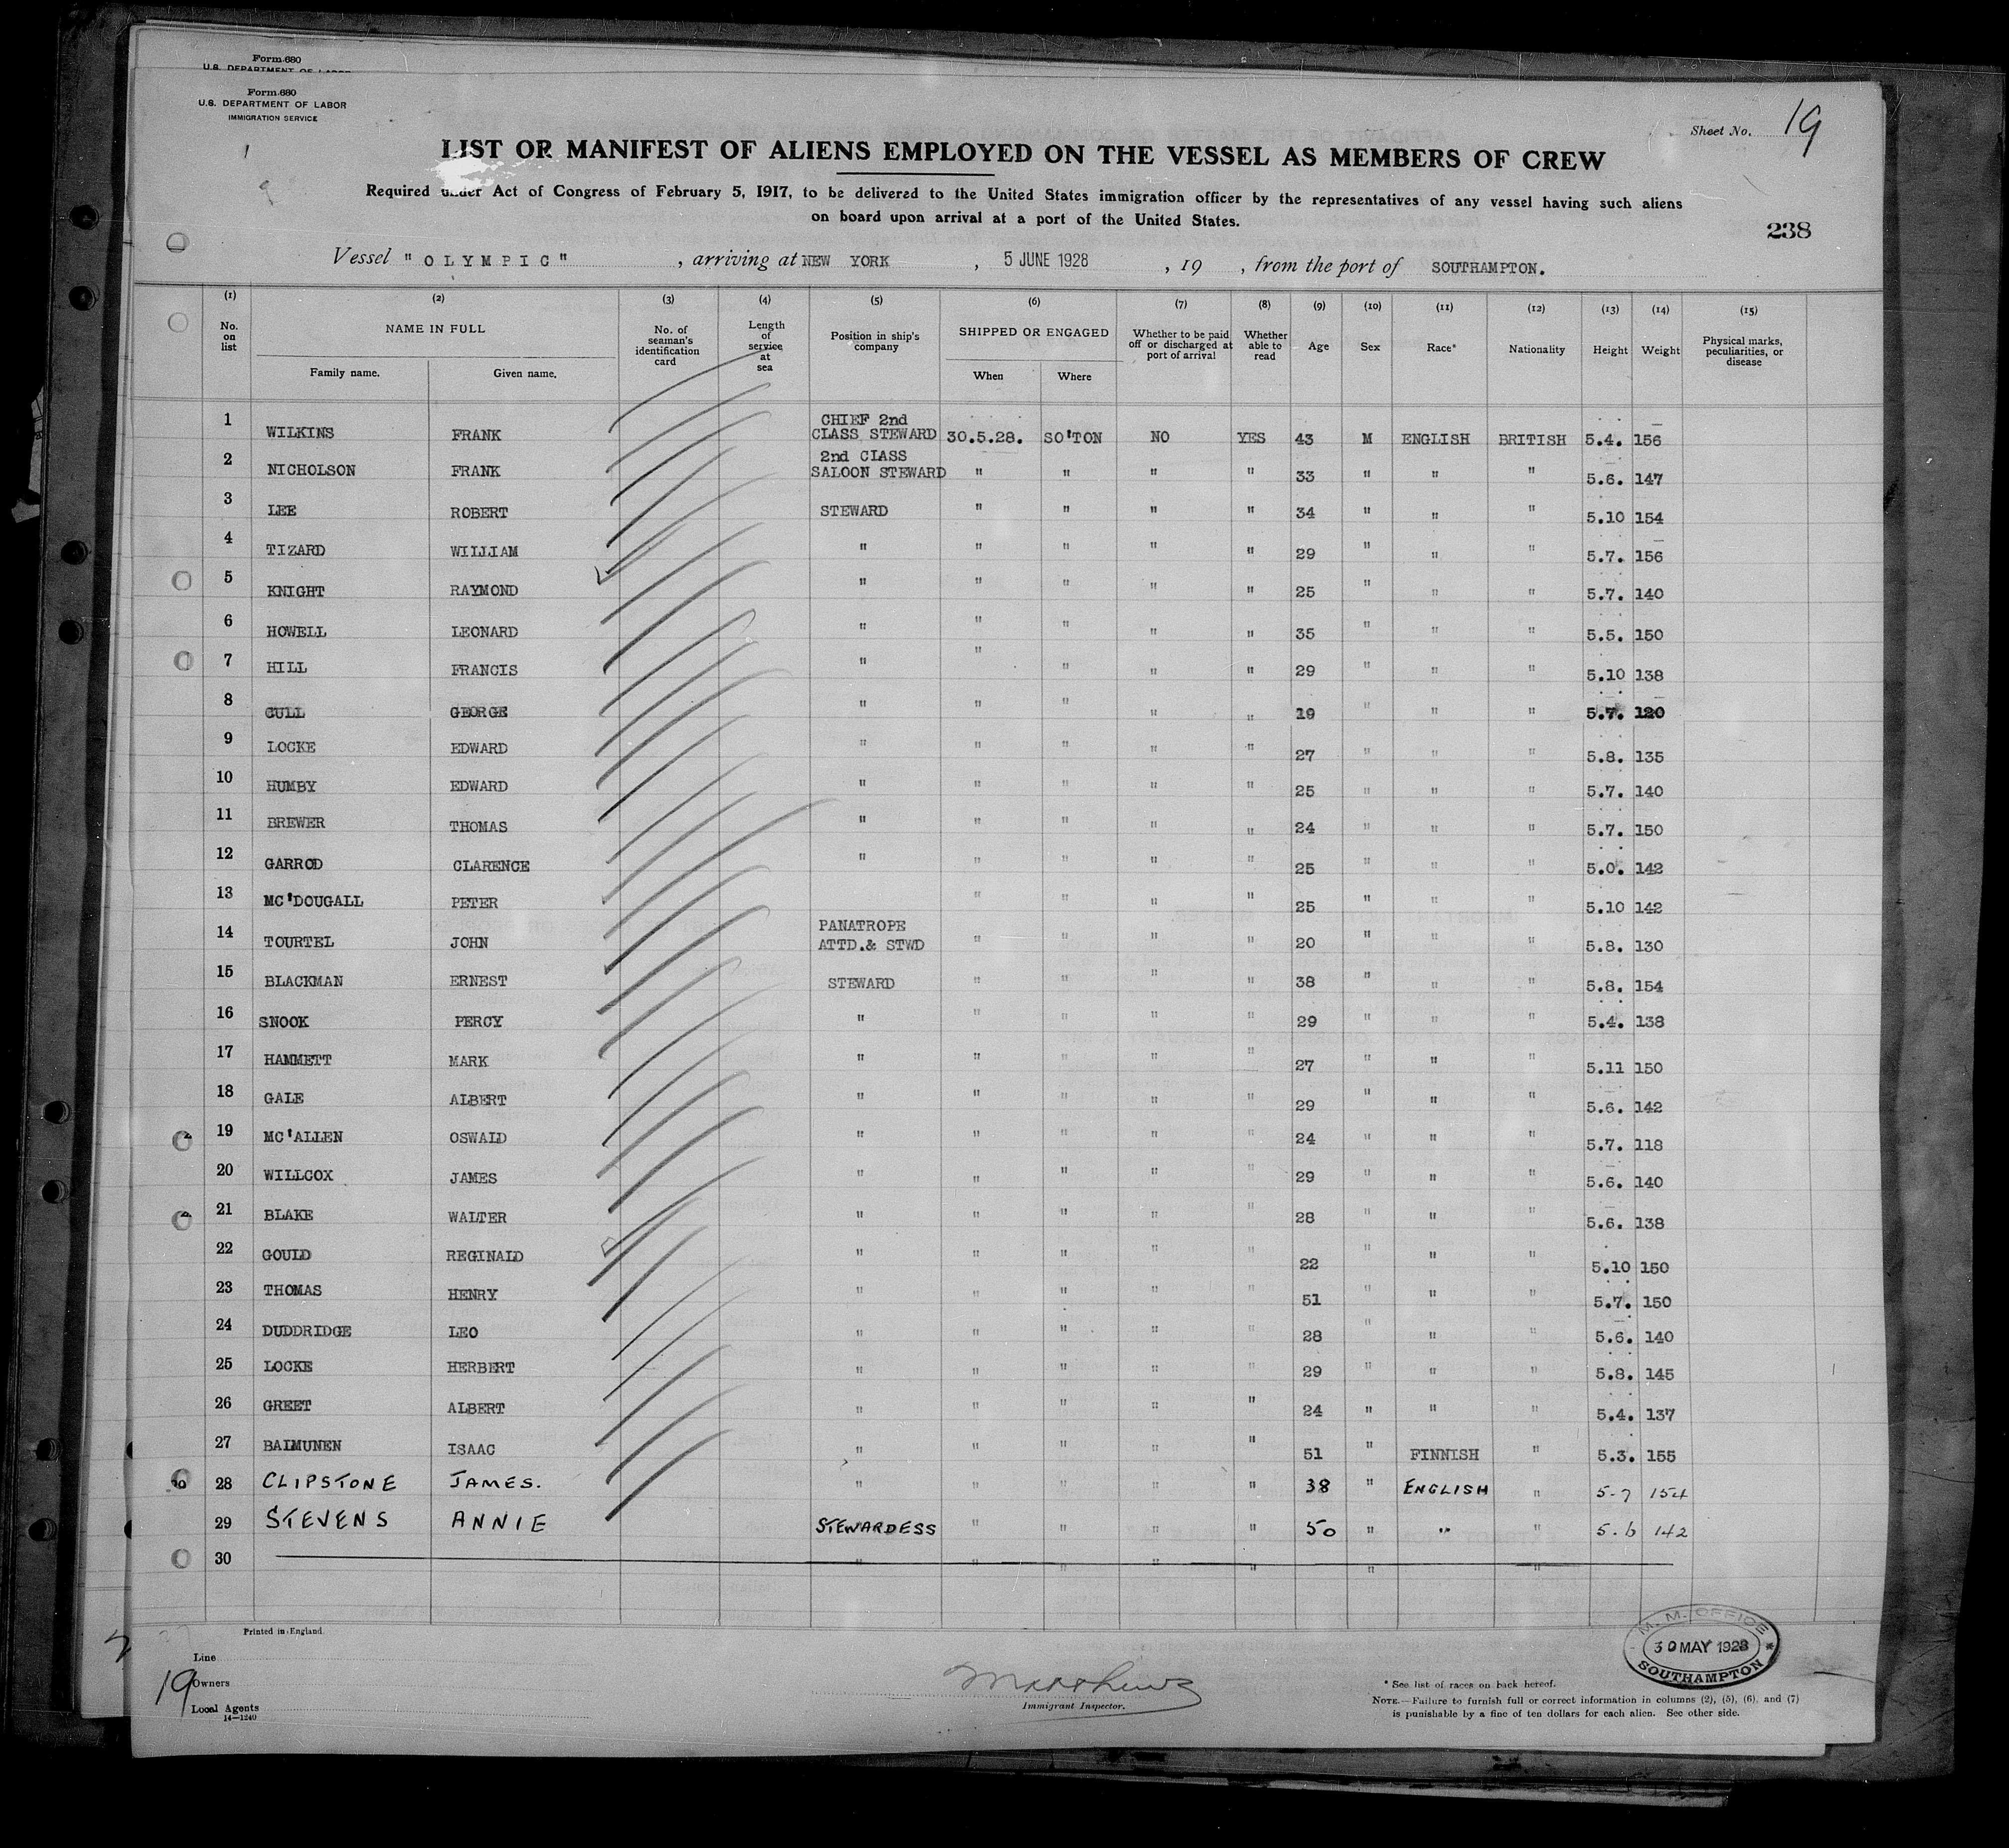 Form 680
U.S. DEPARTMENT OF LABOR
Form 680
U.S. DEPARTMENT OF LABOR
IMMIGRATION SERVICE
Sheet No. 19
LIST OR MANIFEST OF ALIENS EMPLOYED ON THE VESSEL AS MEMBERS OF CREW
Required under Act of Congress of February 5, 1917, to be delivered to the United States immigration officer by the representatives of any vessel having such aliens
on board upon arrival at a port of the United States.
238
Vessel "OLYMPIC", arriving at NEW YORK, 5 JUNE 1928, 19 , from the port of SOUTHAMPTON.
(1) (2) (3) (4) (5) (6) (7) (8) (9) (10) (11) (12) (13) (14) (15)
No. on list NAME IN FULL No. of seaman's identification card Length of service at sea Position in ship's company SHIPPED OR ENGAGED Whether to be paid off or discharged at port of arrival Whether able to read Age Sex Race* Nationality Height Weight Physical marks, peculiarities, or disease
Family name. Given name. When Where
1 WILKINS FRANK CHIEF 2nd CLASS STEWARD 30.5.28. SO'TON NO YES 43 M ENGLISH BRITISH 5.4. 156
2 NICHOLSON FRANK 2nd CLASS SALOON STEWARD " " " " 33 " " " 5.6. 147
3 LEE ROBERT STEWARD " " " " 34 " " " 5.10 154
4 TIZARD WILLIAM " " " " " 29 " " " 5.7. 156
5 KNIGHT RAYMOND " " " " " 25 " " " 5.7. 140
6 HOWELL LEONARD " " " " " 35 " " " 5.5. 150
7 HILL FRANCIS " " " " " 29 " " " 5.10 138
8 CULL GEORGE " " " " " 19 " " " 5.7. 120
9 LOCKE EDWARD " " " " " 27 " " " 5.8. 135
10 HUMBY EDWARD " " " " " 25 " " " 5.7. 140
11 BREWER THOMAS " " " " " 24 " " " 5.7. 150
12 GARROD CLARENCE " " " " " 25 " " " 5.0. 142
13 MC'DOUGALL PETER " " " " 25 " " " 5.10 142
14 TOURTEL JOHN PANATROPE ATTD.& STWD " " " " 20 " " " 5.8. 130
15 BLACKMAN ERNEST STEWARD " " " " 38 " " " 5.8. 154
16 SNOOK PERCY " " " " " 29 " " " 5.4. 138
17 HAMMETT MARK " " " " " 27 " " " 5.11 150
18 GALE ALBERT " " " " " 29 " " " 5.6. 142
19 MC'ALLEN OSWALD " " " " " 24 " " " 5.7. 118
20 WILLCOX JAMES " " " " " 29 " " " 5.6. 140
21 BLAKE WALTER " " " " " 28 " " " 5.6. 138
22 GOULD REGINALD " " " " " 22 " " " 5.10 150
23 THOMAS HENRY " " " " " 51 " " " 5.7. 150
24 DUDDRIDGE LEO " " " " " 28 " " " 5.6. 140
25 LOCKE HERBERT " " " " " 29 " " " 5.8. 145
26 GREET ALBERT " " " " " 24 " " " 5.4. 137
27 BAIMUNEN ISAAC " " " " " 51 " FINNISH " 5.3. 155
28 CLIPSTONE JAMES. " " " " " 38 " ENGLISH " 5-7 154
29 STEVENS ANNIE STEWARDESS " " " " 50 " " " 5.6 142
30 " " " " " " "
Printed in England.
Line
19 Owners
Local Agents
14—1240
Matthews
Immigrant Inspector.
M. M. OFFICE
30 MAY 1928
SOUTHAMPTON
* See list of races on back hereof.
NOTE.—Failure to furnish full or correct information in columns (2), (5), (6), and (7)
is punishable by a fine of ten dollars for each alien. See other side.